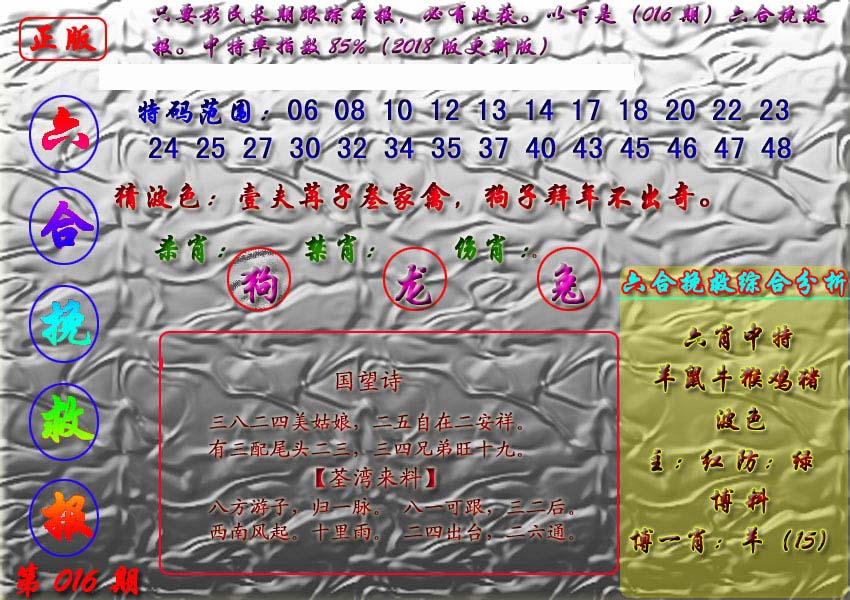 正版
只要彩民长期跟踪本报，必有收获。以下是（016期）六合挽救
报。中特率指数85%（2018版更新版）
六合挽救报
特码范围：06 08 10 12 13 14 17 18 20 22 23
24 25 27 30 32 34 35 37 40 43 45 46 47 48
猜波色：壹夫苒子叁家禽，狗子拜年不出奇。
杀肖：狗 禁肖：龙 伤肖：兔
国望诗
三八二四美姑娘，二五自在二安祥。
有三配尾头二三，三四兄弟旺十九。
【荃湾来料】
八方游子，归一脉。 八一可跟，三二后。
西南风起。十里雨。 二四出台，二六通。
六合挽救综合分析
六肖中特
羊鼠牛猴鸡猪
波色
主：红防：绿
博料
博一肖：羊（15）
第016期